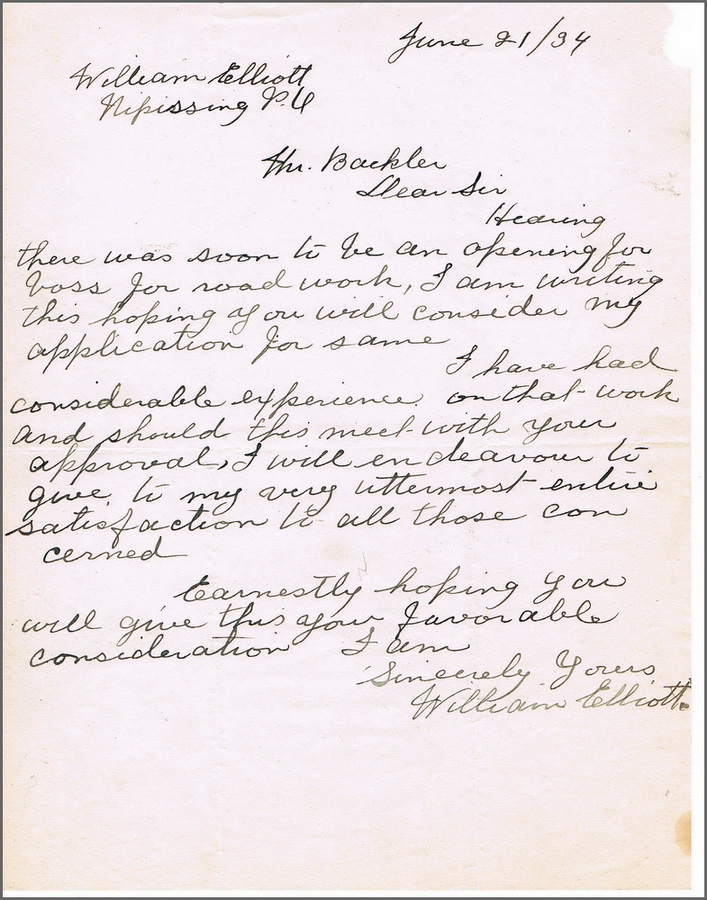 June 21/34
William Elliott
Nipissing P.O
Mr. Backler
Dear Sir
Hearing
there was soon to be an opening for
boss for road work, I am writing
this hoping you will consider my
application for same
I have had
considerable experience on that work
and should this meet with your
approval, I will endeavour to
give to my very uttermost entire
satisfaction to all those con
cerned
Earnestly hoping you
will give this your favorable
consideration I am
Sincerely Yours
William Elliott.